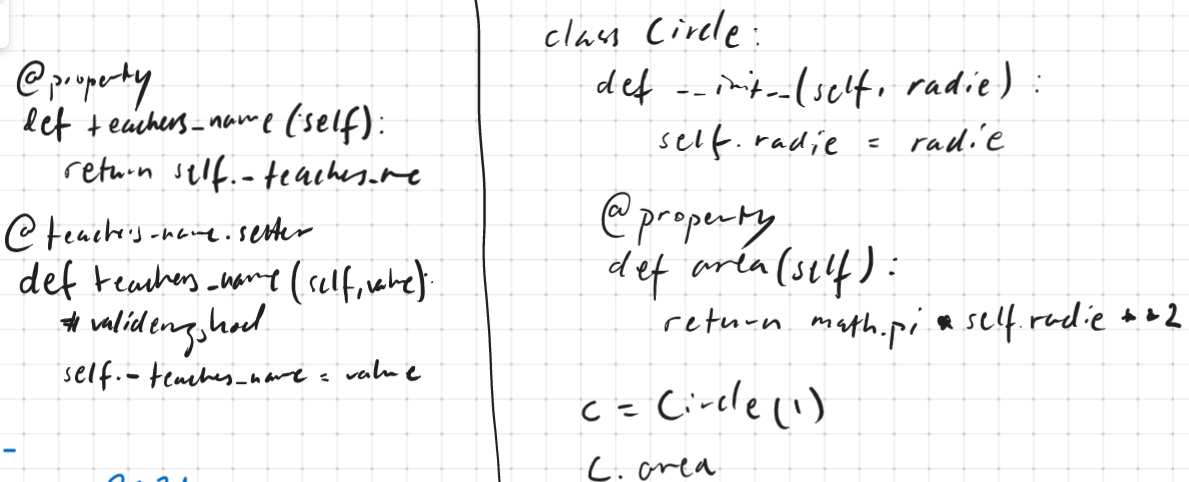 @property
def teachers_name(self):
return self._teachers_me
@teachers_name.setter
def teachers_name(self, value):
# valideringskod
self._teachers_name = value
class Circle:
def __init__(self, radie):
self.radie = radie
@property
def area(self):
return math.pi * self.radie **2
c = Circle(1)
c.area